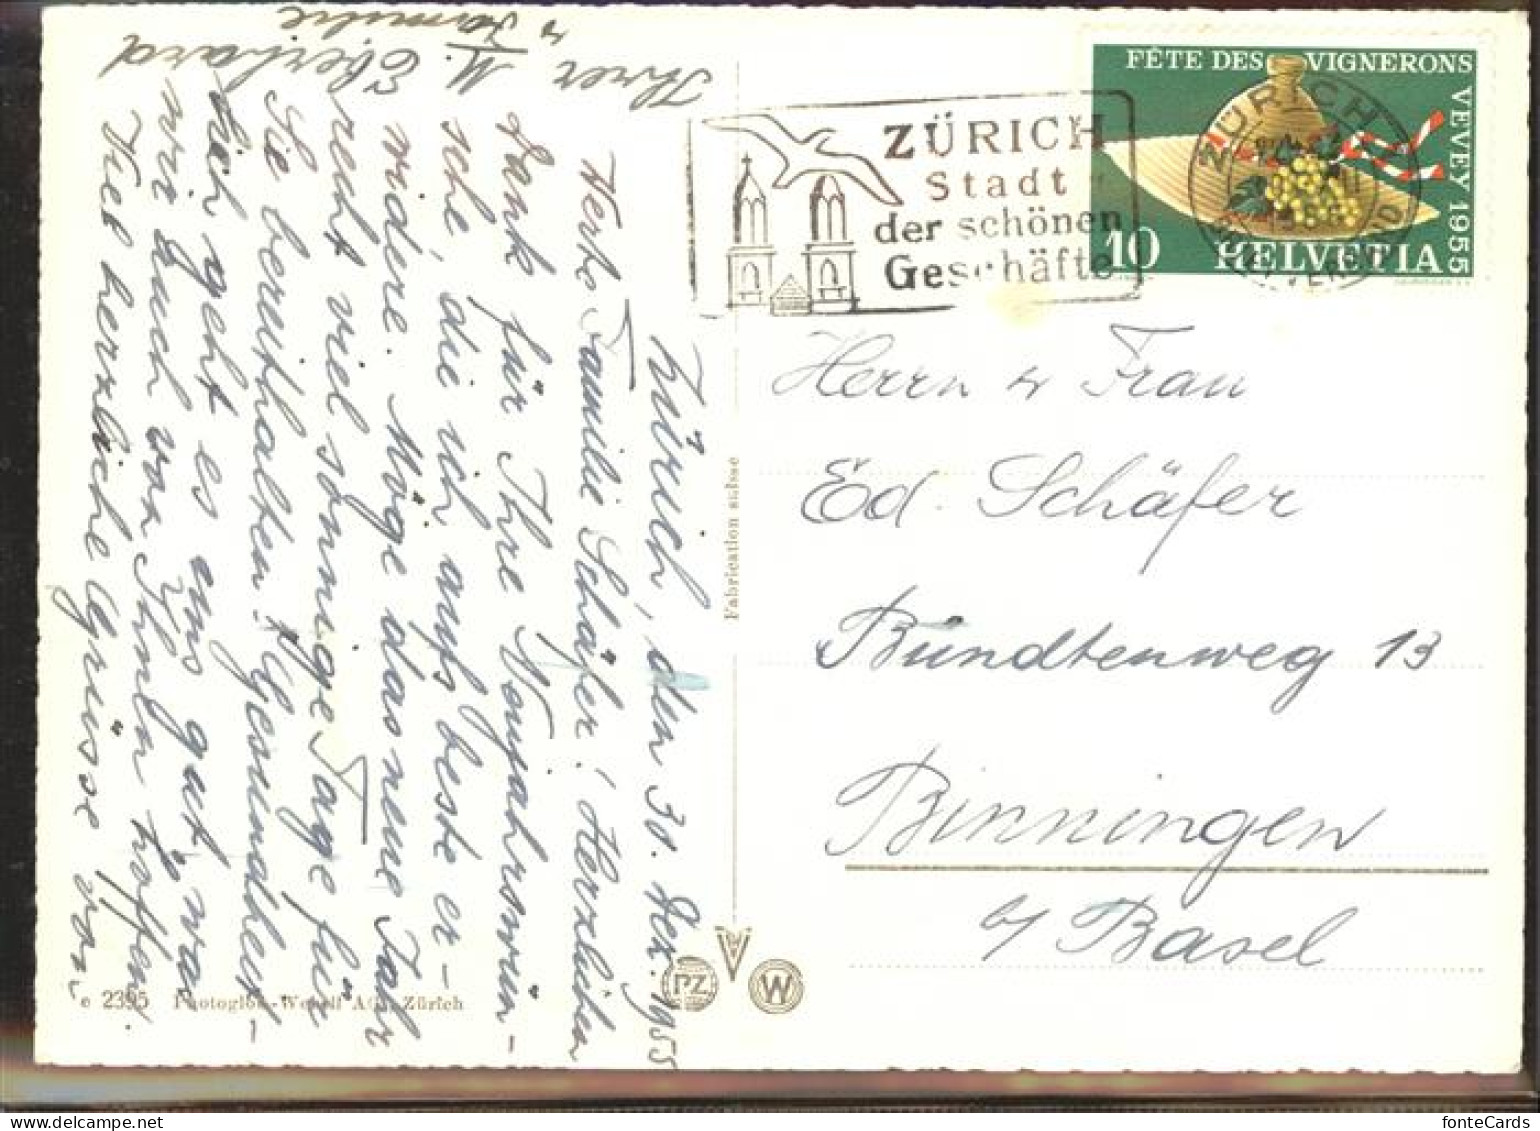 Zürich, den 30. Dez. 1955
Werte Familie Schäfer! Herzlichen
Dank für Ihre Neujahrswün-
sche, die ich aufs beste er-
widere. Möge das neue Jahr
recht viel sonnige Tage für
Sie bereithalten & Gesundheit.
Uns geht es ganz gut, was
wir auch von Ihnen hoffen.
Viel herzliche Grüsse von
Ihrer M. Eberhard
u Familie
FÊTE DES VIGNERONS
VEVEY 1955
10 HELVETIA
ZÜRICH
ZÜRICH
Stadt
der schönen
Geschäfte
Herrn u Frau
Ed. Schäfer
Bündtenweg 13
Binningen
b/ Basel
Fabrication suisse
PZ
W
c 2395 Photoglob-Wehrli AG., Zürich
fonteCards
delcampe.net